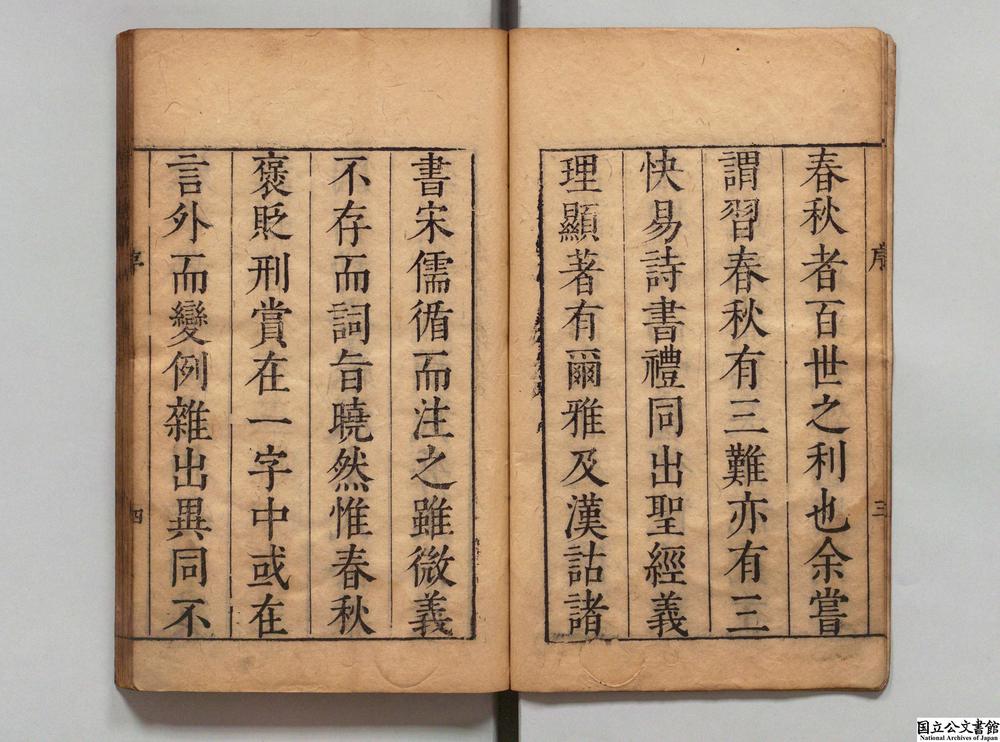 春秋者百世之利也余嘗
謂習春秋有三難亦有三
快易詩書禮同出聖經義
理顯著有爾雅及漢詁諸
書宋儒循而注之雖微義
不存而詞旨曉然惟春秋
褒貶刑賞在一字中或在
言外而變例雜出異同不
序
三
序
四
国立公文書館
National Archives of Japan